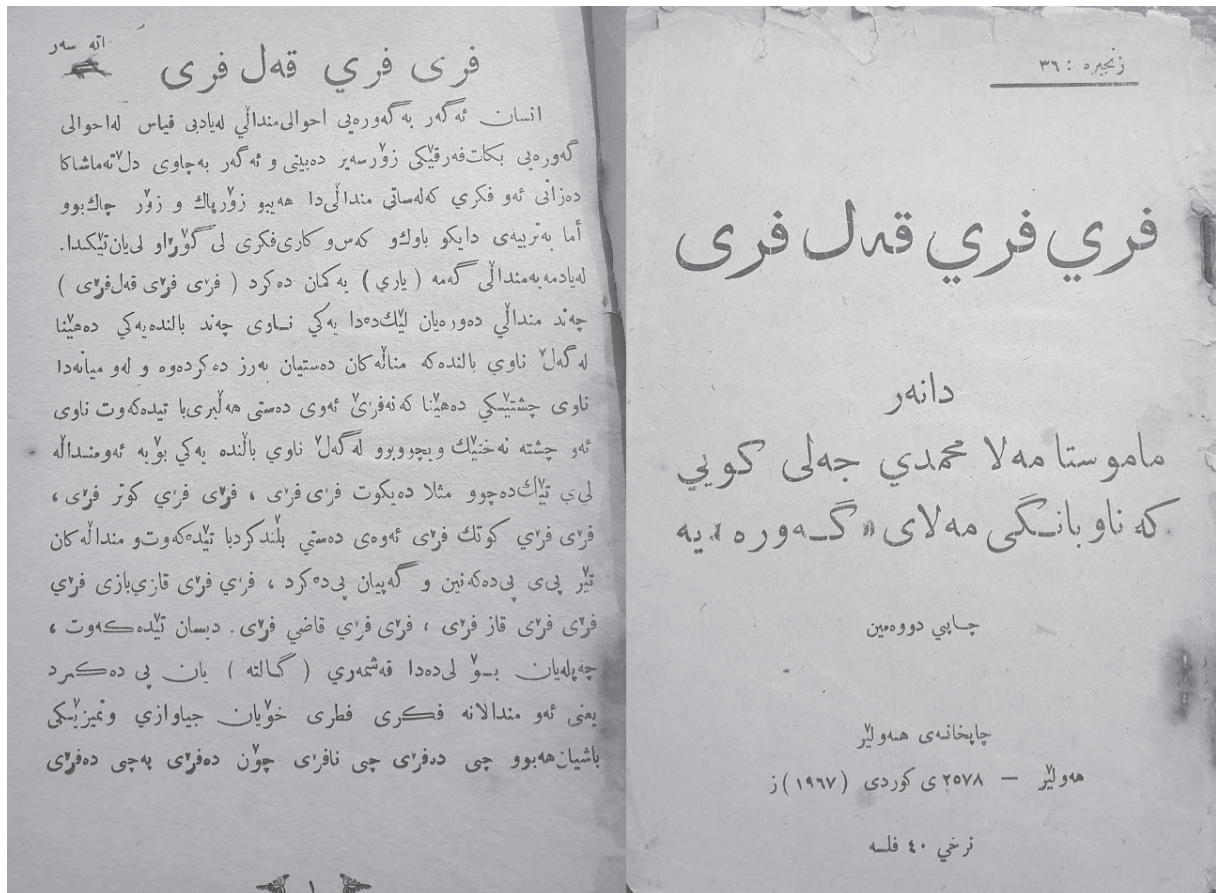 زنجیره : ٣٦
فري فري قەل فری
دانەر
ماموستا مەلا محمدي جەلی کویي
کە ناوبانگی مەلای «گەورە» یە
چاپي دووەمین
چاپخانەی هەولێر
هەولێر — ٢٥٧٨ ی کوردی (١٩٦٧) ز
نرخي ٤٠ فلسە
اتە سەر
فری فري قەل فری
انسان ئەگەر بەگەورەیی احوالی منداڵي لەیادبی قیاس لەاحوالی
گەورەیی بکات فەرقێکی زۆرسەیر دەبینی و ئەگەر بەچاوی دڵ تەماشاکا
دەزانی ئەو فکري کەلەساتي منداڵی‌دا هەیبو زۆرپاك و زۆر چاك‌بوو
أما بەتربیەی دایکو باوك‌و کەس‌و کاری‌فکری لی گوڕاو لی‌یان تێکدا.
لەیادمە بەمنداڵی گەمە ( یاري ) یەکمان دەکرد ( فڕی فڕی قەل‌فڕی )
چەند منداڵي دەورەیان لێك‌دەدا یەکي نـاوی چەند بالندەیەکي دەهێنا
لەگەڵ ناوي بالندەکە مناڵەکان دەستیان بەرز دەکردەوە و لەو میانەدا
ناوی چشتێـکي دەهێنا کەنەفڕێ ئەوی دەستی هەڵبری‌با تیدەکەوت ناوی
ئەو چشتە نەختێك ویچووبوو لەگەڵ ناوي باڵندە یەکي بۆیە ئەومنـداڵە
لی‌ي تێك‌دەچوو مثلا دەیکوت فڕی فڕی ، فڕی فڕي کوتر فڕی ،
فڕی فڕي کوتك فڕی ئەوەی دەستي بڵندکردبا تێدەکەوت‌و منداڵەکان
تێر پی‌ی پی‌دەکەنین و گەپیان پی‌دەکرد ، فڕي فڕی قازی‌بازی فڕي
فڕی فڕی قاز فڕی ، فڕی فڕي قاضي فڕی. دیسان تێدەکەوت ،
چەپلەیان بـۆ لی‌دەدا قەشمەري ( گـالتە ) یان پی دەکـرد
یعنی ئەو مندالانە فکری فطری خۆیان جیاوازي وتمیزێـکی
باشیان هەبوو چی دەفڕی چی نافڕی چۆن دەفڕی پەچي دەفڕی
١